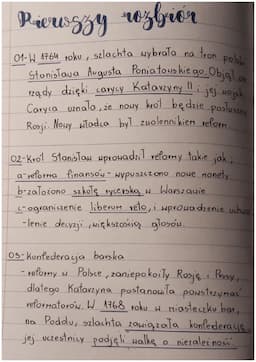 Pierwszy rozbiór
01-W 1764 roku, szlachta wybrała na tron
Stanisława Augusta Poniatowskiego. Objął on
rządy dzięki carycy Katarzyny II i jej wojsk
Caryca uznała, że nowy król będzie posłuszny
Rosji. Nowy władca był zwolennikiem reform.
02-Król Stanisław wprowadził reformy takie jak:
a-reforma finansów - wypuszczono nowe monety
b-założono szkołę rycerską w Warszawie
c-ograniczenie liberum veto, i wprowadzenie uchwa
-lenie decyzji, większością głosów.
03-Konfederacja barska
-reformy w Polsce, zaniepokoiły Rosję i Prusy,
dlatego Katarzyna postanowiła powstrzymać
reformatorów. W 1768 roku w miasteczku bar,
na Podolu, szlachta zawiązała konfederację
jej uczestnicy podjęli walkę o niezależność.